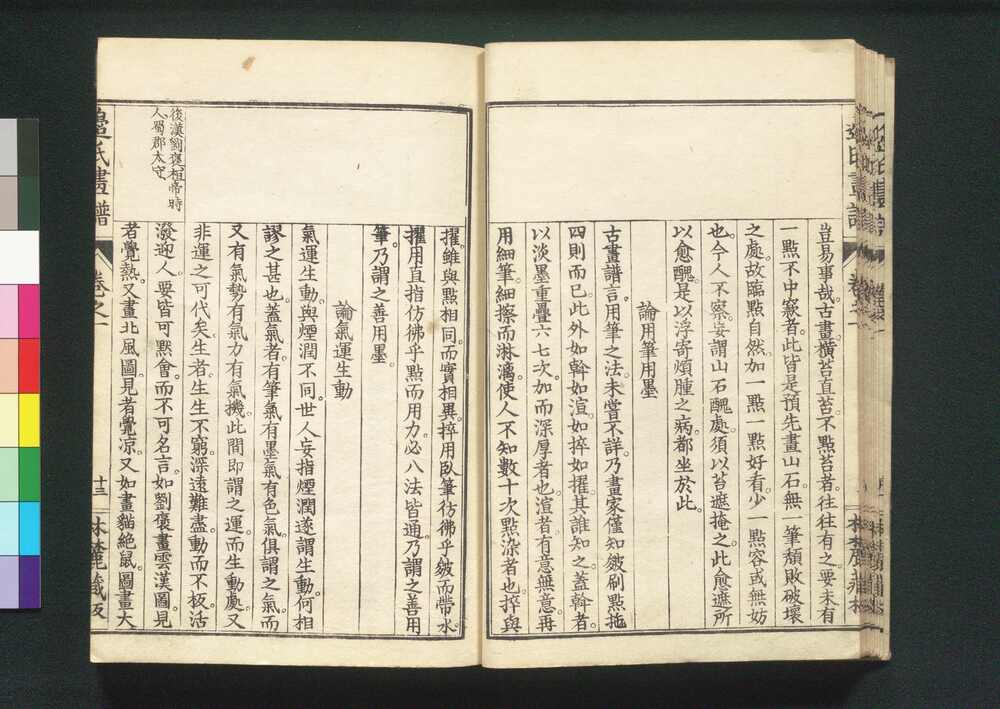 豈易事哉。古畫橫苔直苔。不點苔者。往往有之。要未有
一點不中竅者。此皆是預先畫山石。無一筆頹敗破壞
之處。故臨點自然。加一點一點好看。少一點容或無妨
也。今人不察。妄謂山石醜處。須以苔遮掩之。此愈遮所
以愈醜。是以浮寄煩腫之病。都坐於此。
論用筆用墨
古畫譜言。用筆之法。未嘗不詳。乃畫家僅知皴刷點拖
四則而已。此外如斡如渲。如捽如擢。其誰知之。蓋斡者。
以淡墨重疊六七次加而深厚者也。渲者。有意無意。再
用細筆。細擦而淋漓。使人不知數十次點染者也。捽與
擢。雖與點相同。而實相異。捽用臥筆。彷彿乎皴而帶水。
擢用直指。彷彿乎點而用力。必八法皆通。乃謂之善用
筆。乃謂之善用墨。
論氣運生動
氣運生動。與煙潤不同。世人妄指煙潤。遂謂生動。何相
謬之甚也。蓋氣者。有筆氣。有墨氣。有色氣。俱謂之氣。而
又有氣勢。有氣力。有氣機。此間即謂之運。而生動處。又
非運之可代矣。生者。生生不窮。深遠難盡。動而不扳。活
潑迎人。要皆可默會。而不可名言。如劉褒畫雲漢圖。見
者覺熱。又畫北風圖。見者覺凉。又如畫貓絶鼠。圖畫大
後漢劉褒。桓帝時
人。蜀郡太守
畫譜
卷之一
十三